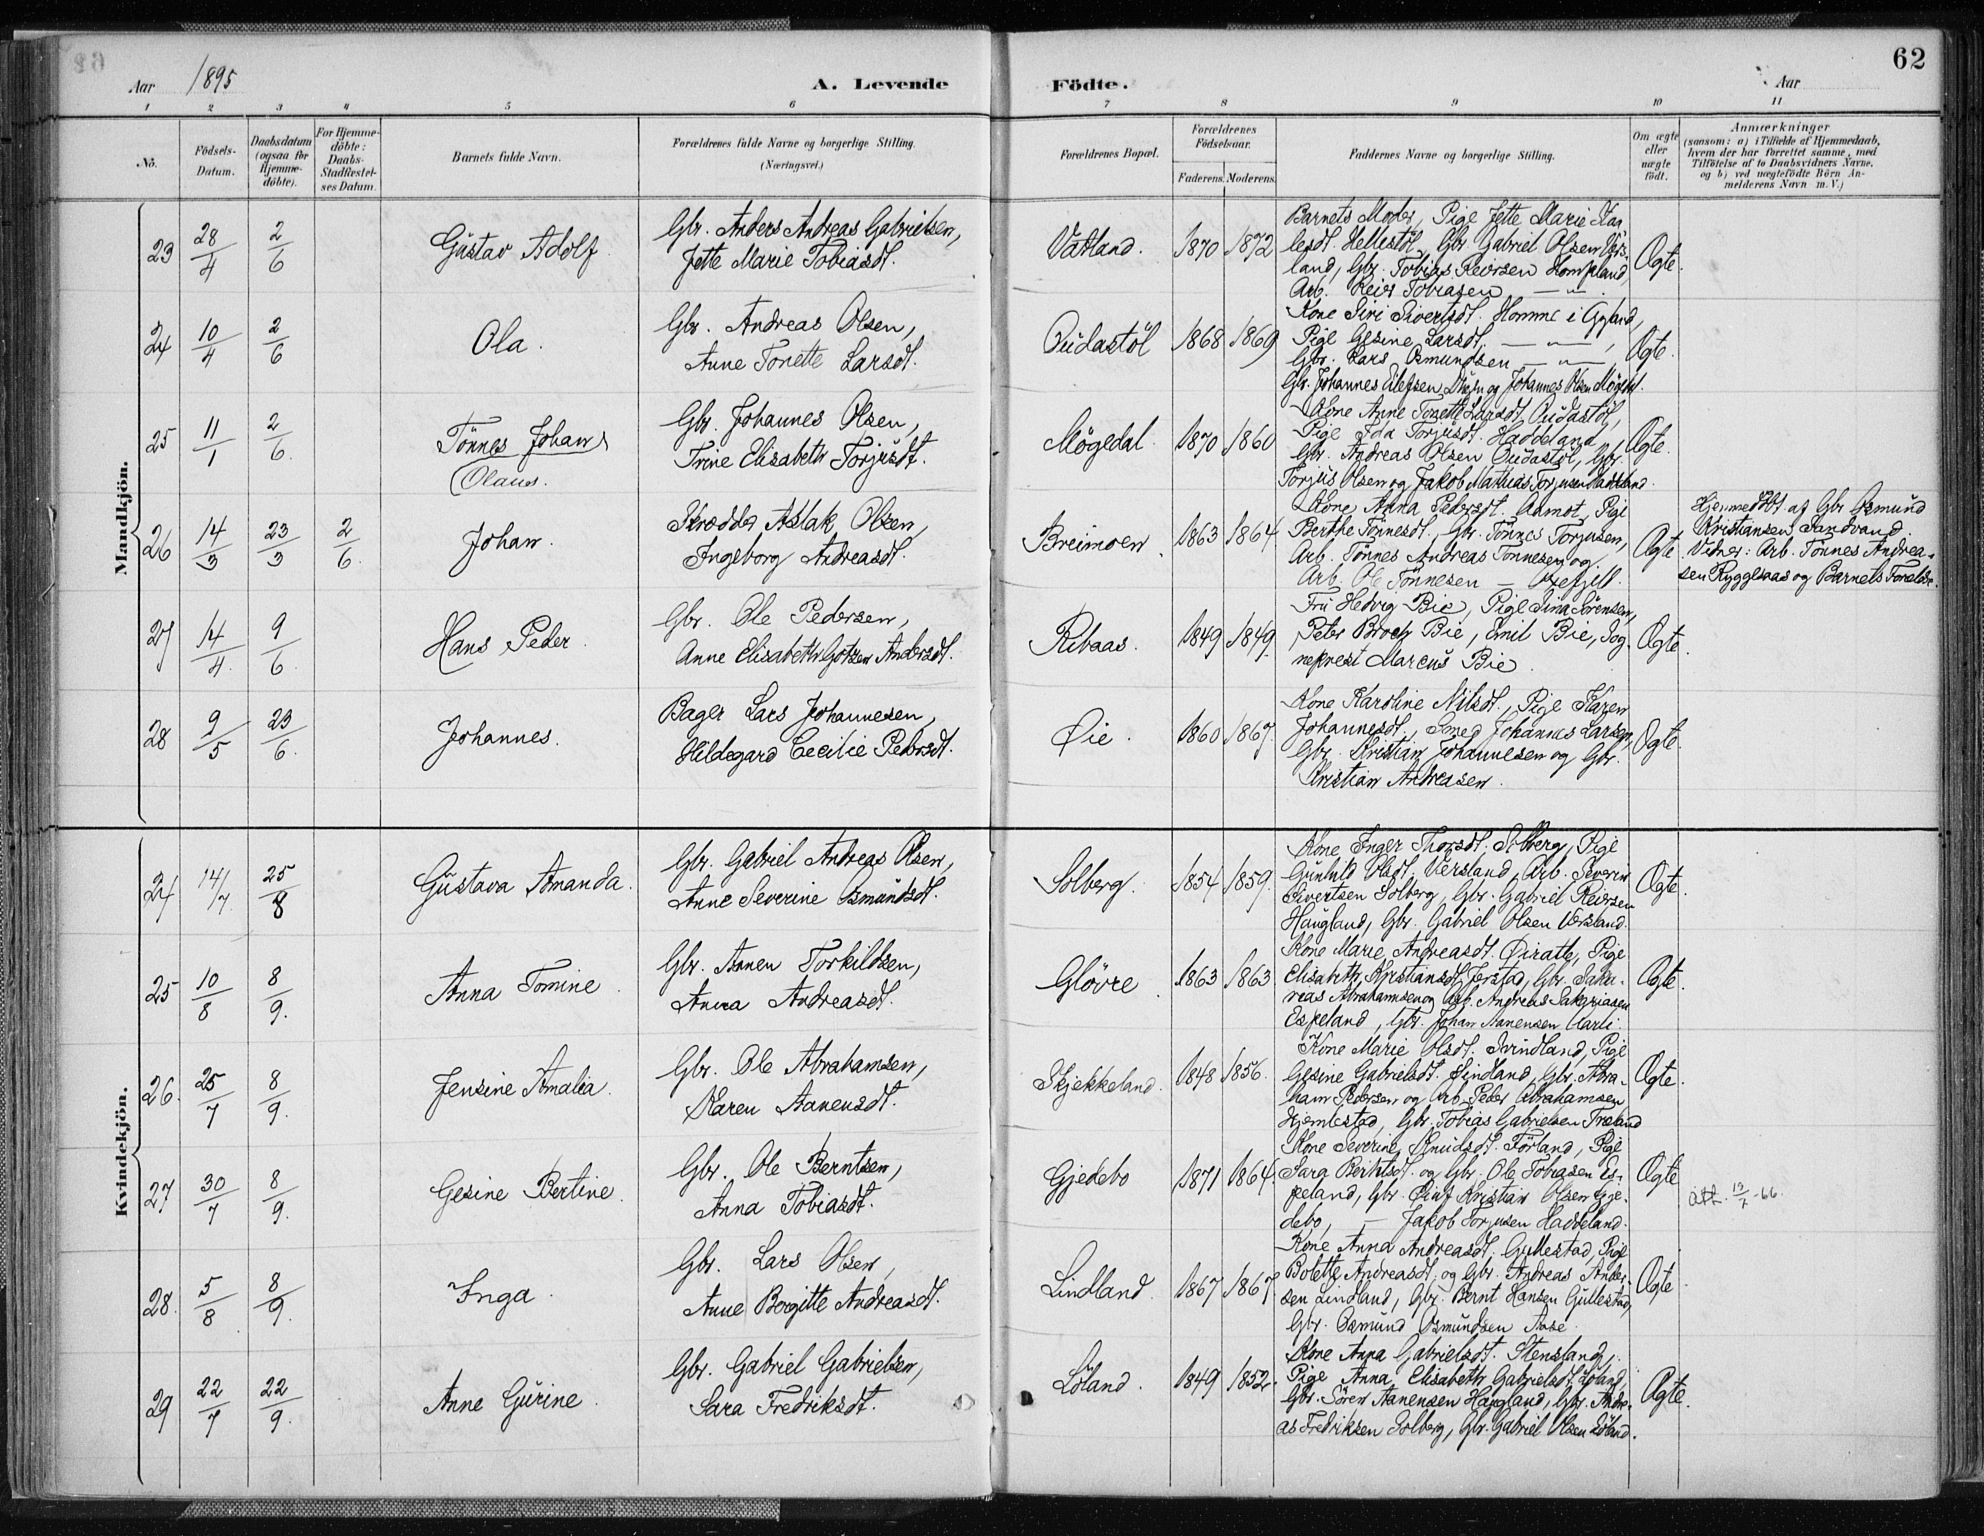 62
Aar 1895
A. Levende Födte.
Aar
1 2 3 4 5 6 7 8 9 10 11
No.
Födsels-Datum.
Daabsdatum (ogsaa for Hjemme-döbte).
For Hjemme-döbte: Daabs-Stadfæstel-ses Datum.
Barnets fulde Navn.
Forældrenes fulde Navne og borgerlige Stilling. (Næringsvei.)
Forældrenes Bopæl.
Forældrenes Födselsaar.
Faderens. Moderens.
Faddernes Navne og borgerlige Stilling.
Om ægte eller uægte födt.
Anmærkninger
(saasom: a) i Tilfælde af Hjemmedaab,
hvem der har forrettet samme, med
Tilföielse af to Daabsvidners Navne,
og b) ved uægtefödte Börn An-
melderens Navn m. V.)
Mandkjön.
23 28/4 2/6 Gustav Adolf.
Gbr. Anders Andreas Gabrielsen,
Jette Marie Tobiasdt.
Vatland. 1870 1872
Barnets Moder, Pige Jette Marie
lesdt. Hellestöl, Gbr. Gabriel Olsen
land, Gbr. Tobias Reiersen
Arb. Reier Tobiasen — " —
Ægte.
24 10/4 2/6 Ola.
Gbr. Andreas Olsen,
Anne Tonette Larsdt.
Oudastöl 1868 1869
Kone Siri Sivertsdt. Homme i Gyland,
Pige Gesine Larsdt. — " —,
Gbr. Lars Osmundsen — " —,
Gbr. Johannes Eilefsen og Johannes Olsen Mögedal.
Ægte.
25 11/1 2/6 Tönnes Johan
Olaus.
Gbr. Johannes Olsen,
Trine Elisabeth Torjusdt.
Mögedal. 1870 1860
Kone Anne Tonette Larsdt. Oudastöl,
Pige Ida Torjusdt. Haddeland,
Gbr. Andreas Olsen Oudastöl, Gbr.
Torjus Olsen og Jakob Mathias Torjusen Haddeland.
Ægte.
26 14/3 23/3 2/6 Johan.
Skrædder Aslak Olsen,
Ingeborg Andreasdt.
Breimoen. 1863 1864
Kone Anna Pedersdt. Aamot, Pige
Berthe Tönnesdt., Gbr. Tönnes Torjusen,
Arb. Tönnes Andreas Tönnesen og
Arb. Ole Tönnesen —
Ægte
Hjemmedöbt af Gbr. Osmund
Kristiansen Sandvand
Vidner: Arb. Tönnes Andrea-
sen Ryggesaas og Barnets Forældre.
27 14/4 9/6 Hans Peder.
Gbr. Ole Pedersen,
Anne Elisabeth Gotzen Andersdt.
Ribaas. 1849 1849.
Fru Hedvig Bie, Pige Sina Sörensen,
Peter Broch Bie, Emil Bie, Sog-
neprest Marcus Bie.
Ægte.
28 9/5 23/6 Johannes.
Bager Lars Johannesen,
Hildegard Cecilie Pedersdt.
Øie. 1860 1867.
Kone Karoline Nilsdt., Pige Karen
Johannesdt., Smed Johannes Larsen,
Gbr. Kristian Johannesen og Gbr.
Kristian Andreasen.
Ægte.
Kvindekjön.
24 14/7 25/8 Gustava Amanda.
Gbr. Gabriel Andreas Olsen,
Anne Severine Osmundsdt.
Solberg. 1854 1859.
Kone Inger Thorsdt. Solberg, Pige
Gunhild Olsdt. Versland, Arb. Severin
Sivertsen Solberg, Gbr. Gabriel Reiersen
Haugland, Gbr. Gabriel Olsen Versland.
Ægte.
25 10/8 8/9. Anna Tomine.
Gbr. Aanen Torkildsen,
Anna Andreasdt.
Glövre. 1863 1863
Kone Marie Andreasdt. Øiratte, Pige
Elisabeth Kristiansdt. Jerstad, Gbr. Saka-
rias Abrahamsen og Arb. Andreas Sakariasen
Espeland, Gbr. Johan Aanensen
Ægte.
26. 25/7 8/9. Jensine Amalia.
Gbr. Ole Abrahamsen,
Karen Aanensdt.
Skjekkeland. 1848 1856.
Kone Marie Olsdt. Svindland, Pige
Gesine Gabrielsdt. Svindland, Gbr. Abra-
ham Pedersen og Arb. Peder Abrahamsen
Hjemlestad, Gbr. Tobias Gabrielsen Træland
Ægte.
27 30/7 8/9. Gesine Bertine.
Gbr. Ole Berntsen,
Anna Tobiasdt.
Gjedebo 1871 1864
Kone Severine Knudsdt. Förland, Pige
Sara Berntsdt. og Gbr. Ole Tobiasen Es-
peland, Gbr. Kristian Olsen Gje-
debo, — Jakob Torjusen Haddeland.
Ægte
att. 19/7-66.
28. 5/8 8/9. Inga.
Gbr. Lars Olsen,
Anne Borgitte Andreasdt.
Lindland. 1867 1867.
Kone Anna Andreasdt. Gullestad, Pige
Bolette Andreasdt. og Gbr. Andreas Ander-
sen Lindland, Gbr. Bernt Hansen Gullestad,
Gbr. Osmund Osmundsen Aase.
Ægte
29 22/7 22/9. Anne Gurine.
Gbr. Gabriel Gabrielsen,
Sara Fredriksdt.
Löland. 1849 1852.
Kone Anna Gabrielsdt. Stensland,
Pige Anna Elisabeth Gabrielsdt. Löland,
Gbr. Sören Aanensen Haugland, Gbr. Andre-
as Fredriksen Solberg, Gbr. Gabriel Olsen Löland.
Ægte.